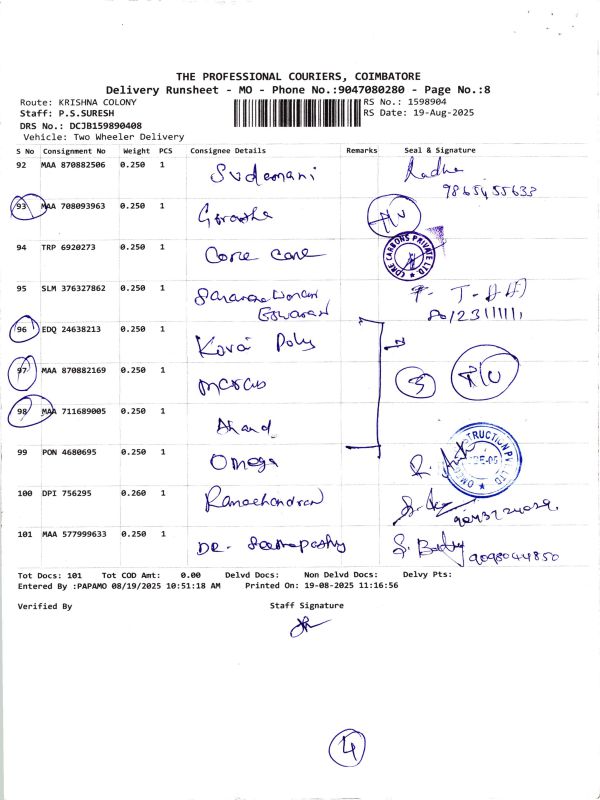 THE PROFESSIONAL COURIERS, COIMBATORE
Delivery Runsheet - MO - Phone No.:9047080280 - Page No.:8
Route: KRISHNA COLONY RS No.: 1598904
Staff: P.S.SURESH RS Date: 19-Aug-2025
DRS No.: DCJB159890408
Vehicle: Two Wheeler Delivery
S No Consignment No Weight PCS Consignee Details Remarks Seal & Signature
92 MAA 870882506 0.250 1 Sudemani Radha
9865455633
93 MAA 708093963 0.250 1
94 TRP 6920273 0.250 1 Core care CORE CARBONS PRIVATE LTD
95 SLM 376327862 0.250 1
Eswaran
96 EDQ 24638213 0.250 1 Kovai Poly
97 MAA 870882169 0.250 1 Marcus 3
98 MAA 711689005 0.250 1 Anand
99 PON 4680695 0.250 1 Omega
100 DPI 756295 0.260 1 Ramachandran
101 MAA 577999633 0.250 1 DR. 9098044850
Tot Docs: 101 Tot COD Amt: 0.00 Delvd Docs: Non Delvd Docs: Delvy Pts:
Entered By :PAPAMO 08/19/2025 10:51:18 AM Printed On: 19-08-2025 11:16:56
Verified By Staff Signature
4